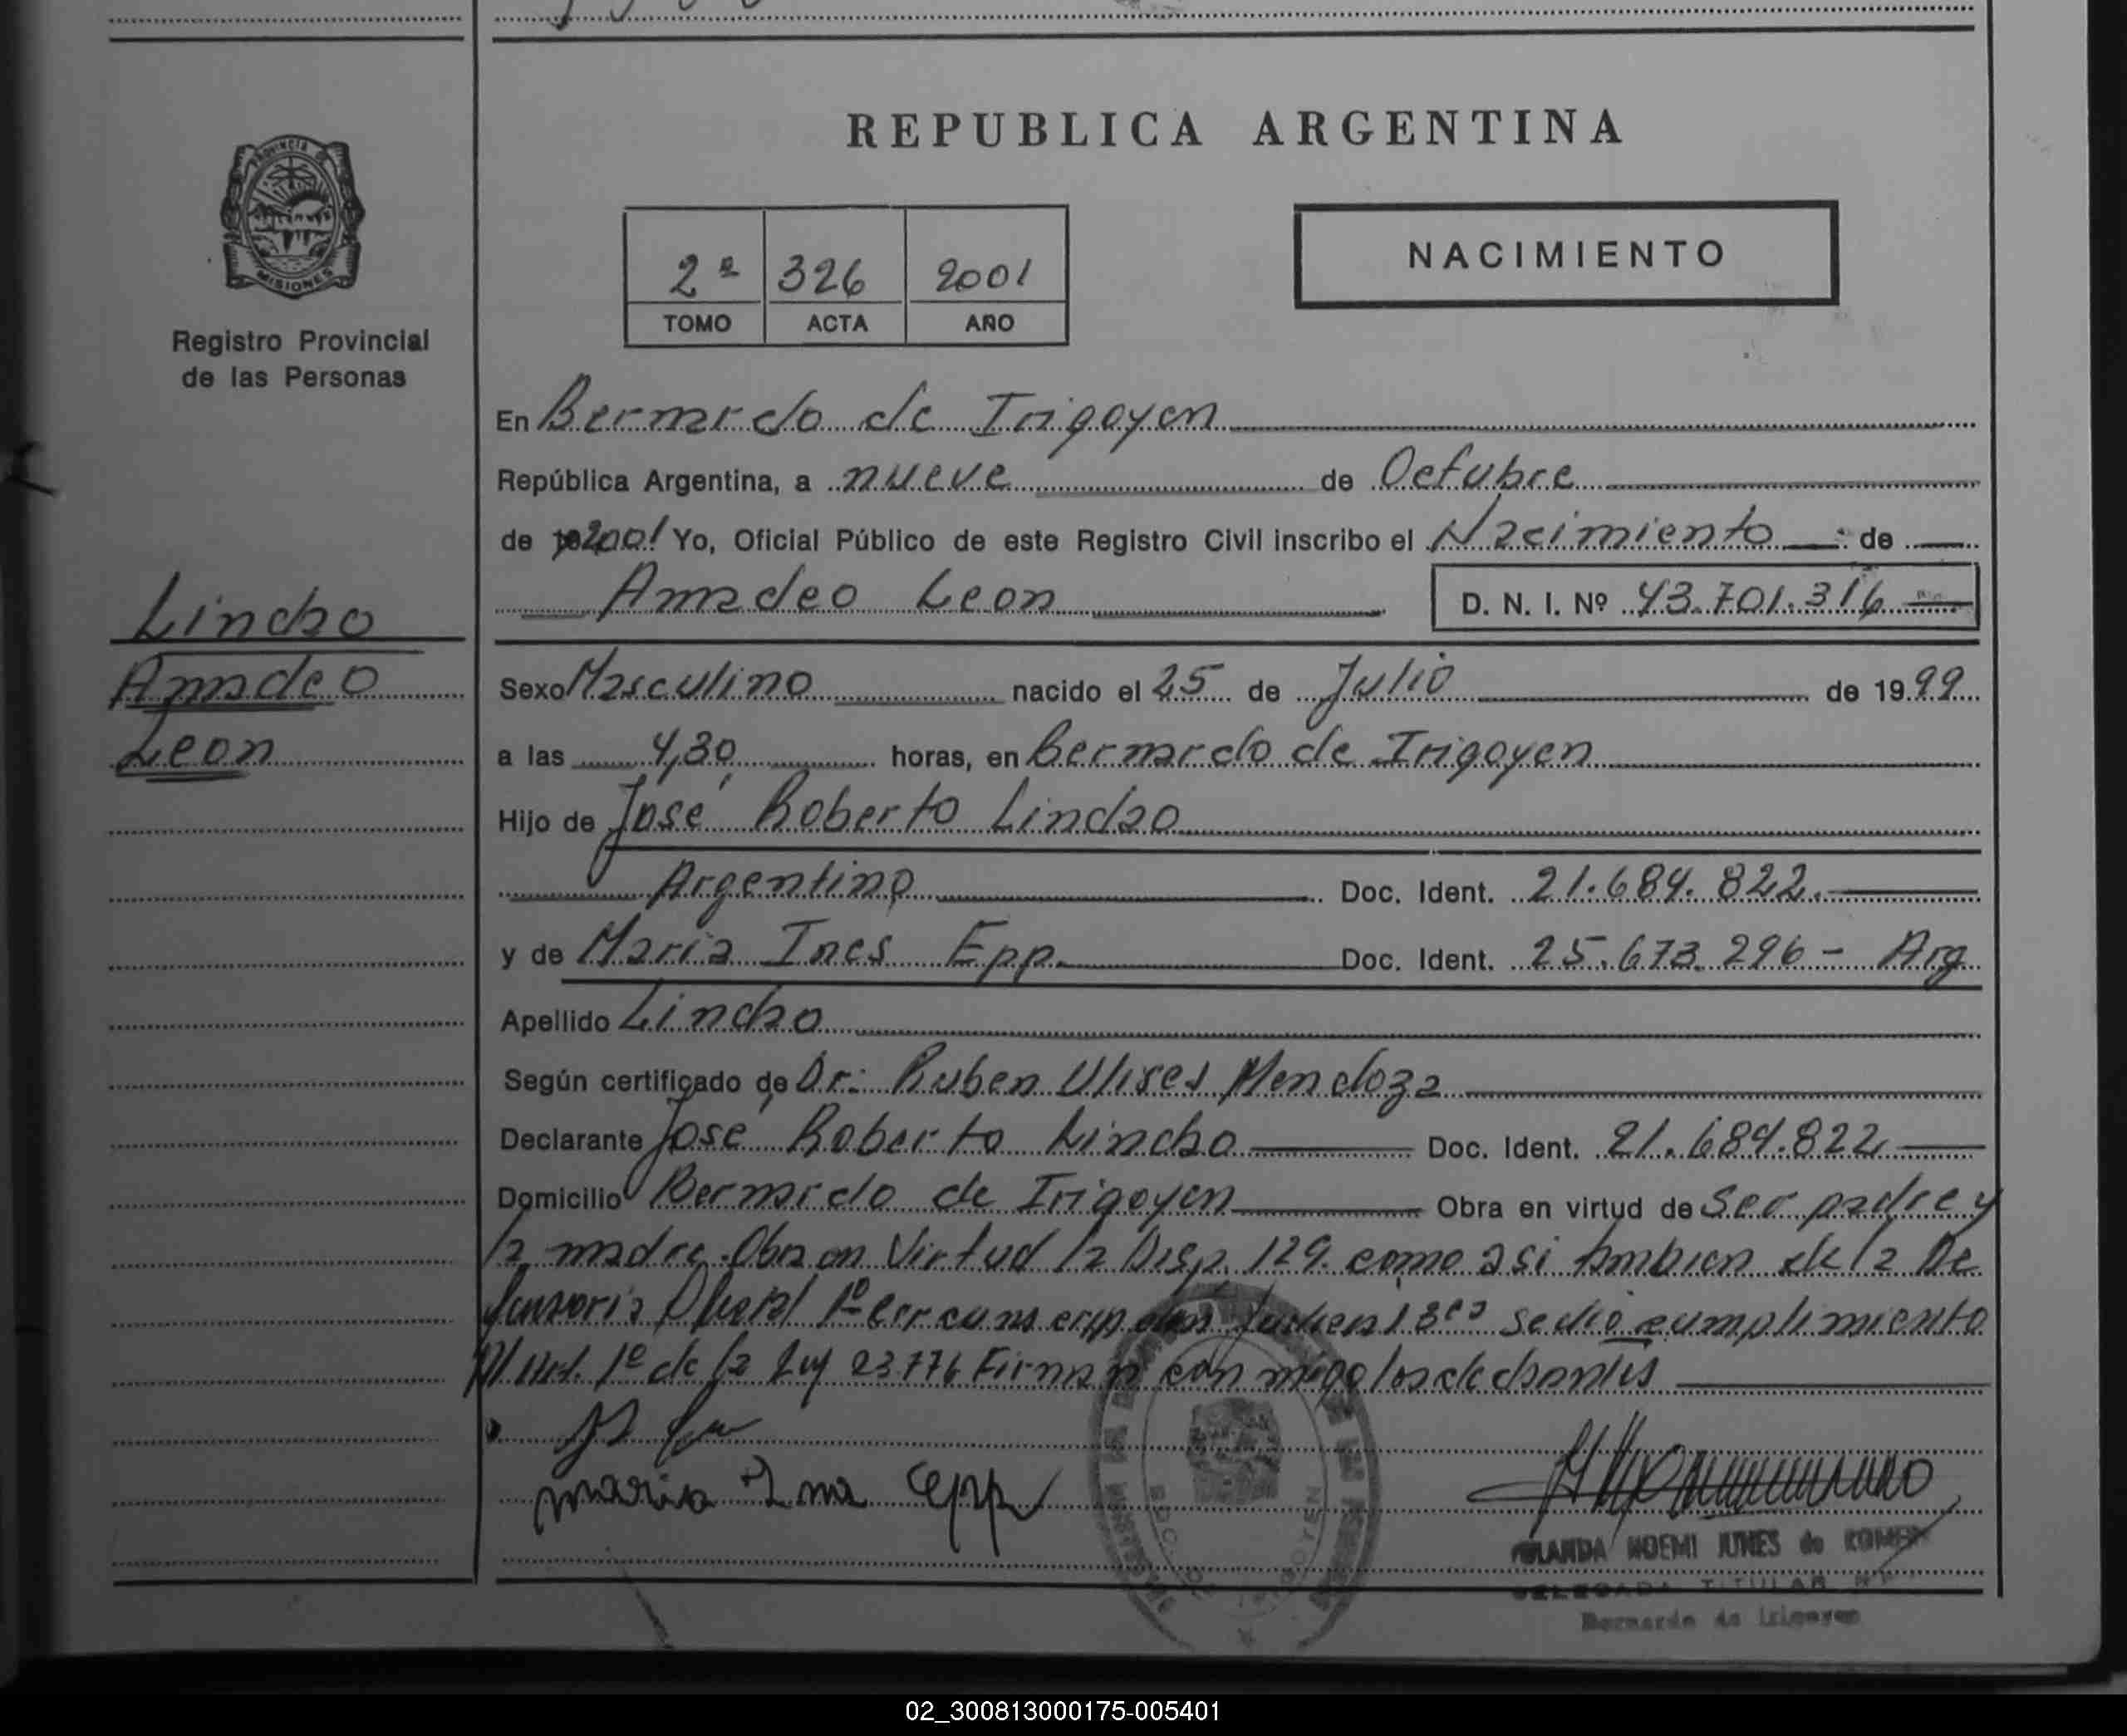 REPUBLICA ARGENTINA
PROVINCIA DE
MISIONES
Registro Provincial
de las Personas
2ª 326 2001
TOMO ACTA AÑO
NACIMIENTO
En Bernardo de Irigoyen
República Argentina, a nueve de Octubre
de 2001 Yo, Oficial Público de este Registro Civil inscribo el Nacimiento de
Amadeo Leon D. N. I. Nº 43.701.316
Lindao
Amadeo
Leon
Sexo Masculino nacido el 25 de Julio de 1999
a las 4,30 horas, en Bernardo de Irigoyen
Hijo de José Roberto Lindao
Argentino Doc. Ident. 21.684.822.
y de Maria Ines Epp. Doc. Ident. 25.673.296 - Arg
Apellido Lindao
Según certificado de Dr: Ruben Ulises Mendoza
Declarante José Roberto Lindao Doc. Ident. 21.684.822
Domicilio Bernardo de Irigoyen Obra en virtud de Ser padre y
la madre. Obra en Virtud la Disp. 129. como asi tambien de la De
fensoria Oficial 1º Circunscripcion Judicial 3ra se dio cumplimiento
Al Art. 1º de la Ley 23776 Firman con migo los declarantes
maria Ines Epp
NOEMI JUNES de
DELEGADA TITULAR
Bernardo de Irigoyen
02_300813000175-005401